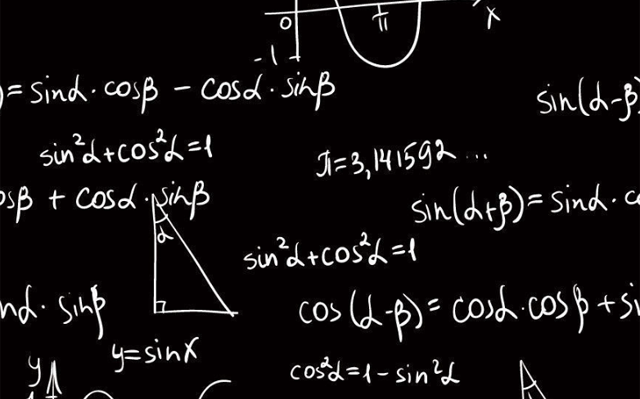 0 π x
-1
) = sinα · cosβ − cosα · sinβ
sin(α-β)
sin²α+cos²α=1
π=3,141592...
osβ + cosα · sinβ
sin(α+β)= sinα · co
α
sin²α+cos²α=1
nα · sinβ
cos(α-β)= cosα·cosβ + si
y=sinx
y
cos²α=1-sin²α